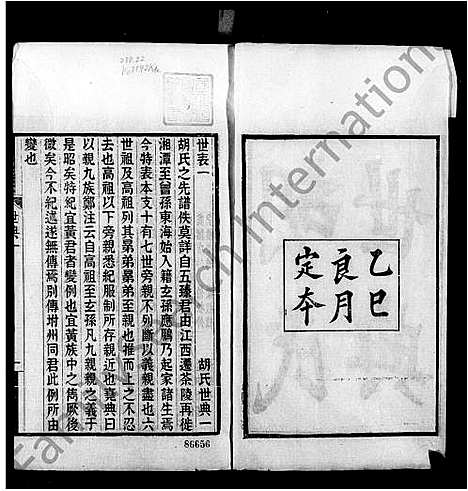 乙巳
良月
定本
世表一
胡氏世典一
胡氏之先譜佚莫詳自五臻君由江西遷茶陵再徙
湘潭至曾孫東海始入籍玄孫應鵬乃起家諸生焉
今特表本支十有七世旁親不列斷以義親盡也六
世祖及高祖則具列其昆弟昆弟至親也推而上之不忍
去也高祖以下旁親悉紀服制所存親近也堯典曰
以親九族鄭注云自高祖至玄孫凡九親親之義于
是昭矣特紀宜黃君者變例也宜黃族中之儁厥後
微矣今不紀述遂無傳焉別傳坿州同君此例所由
變也
86656
Early Research International